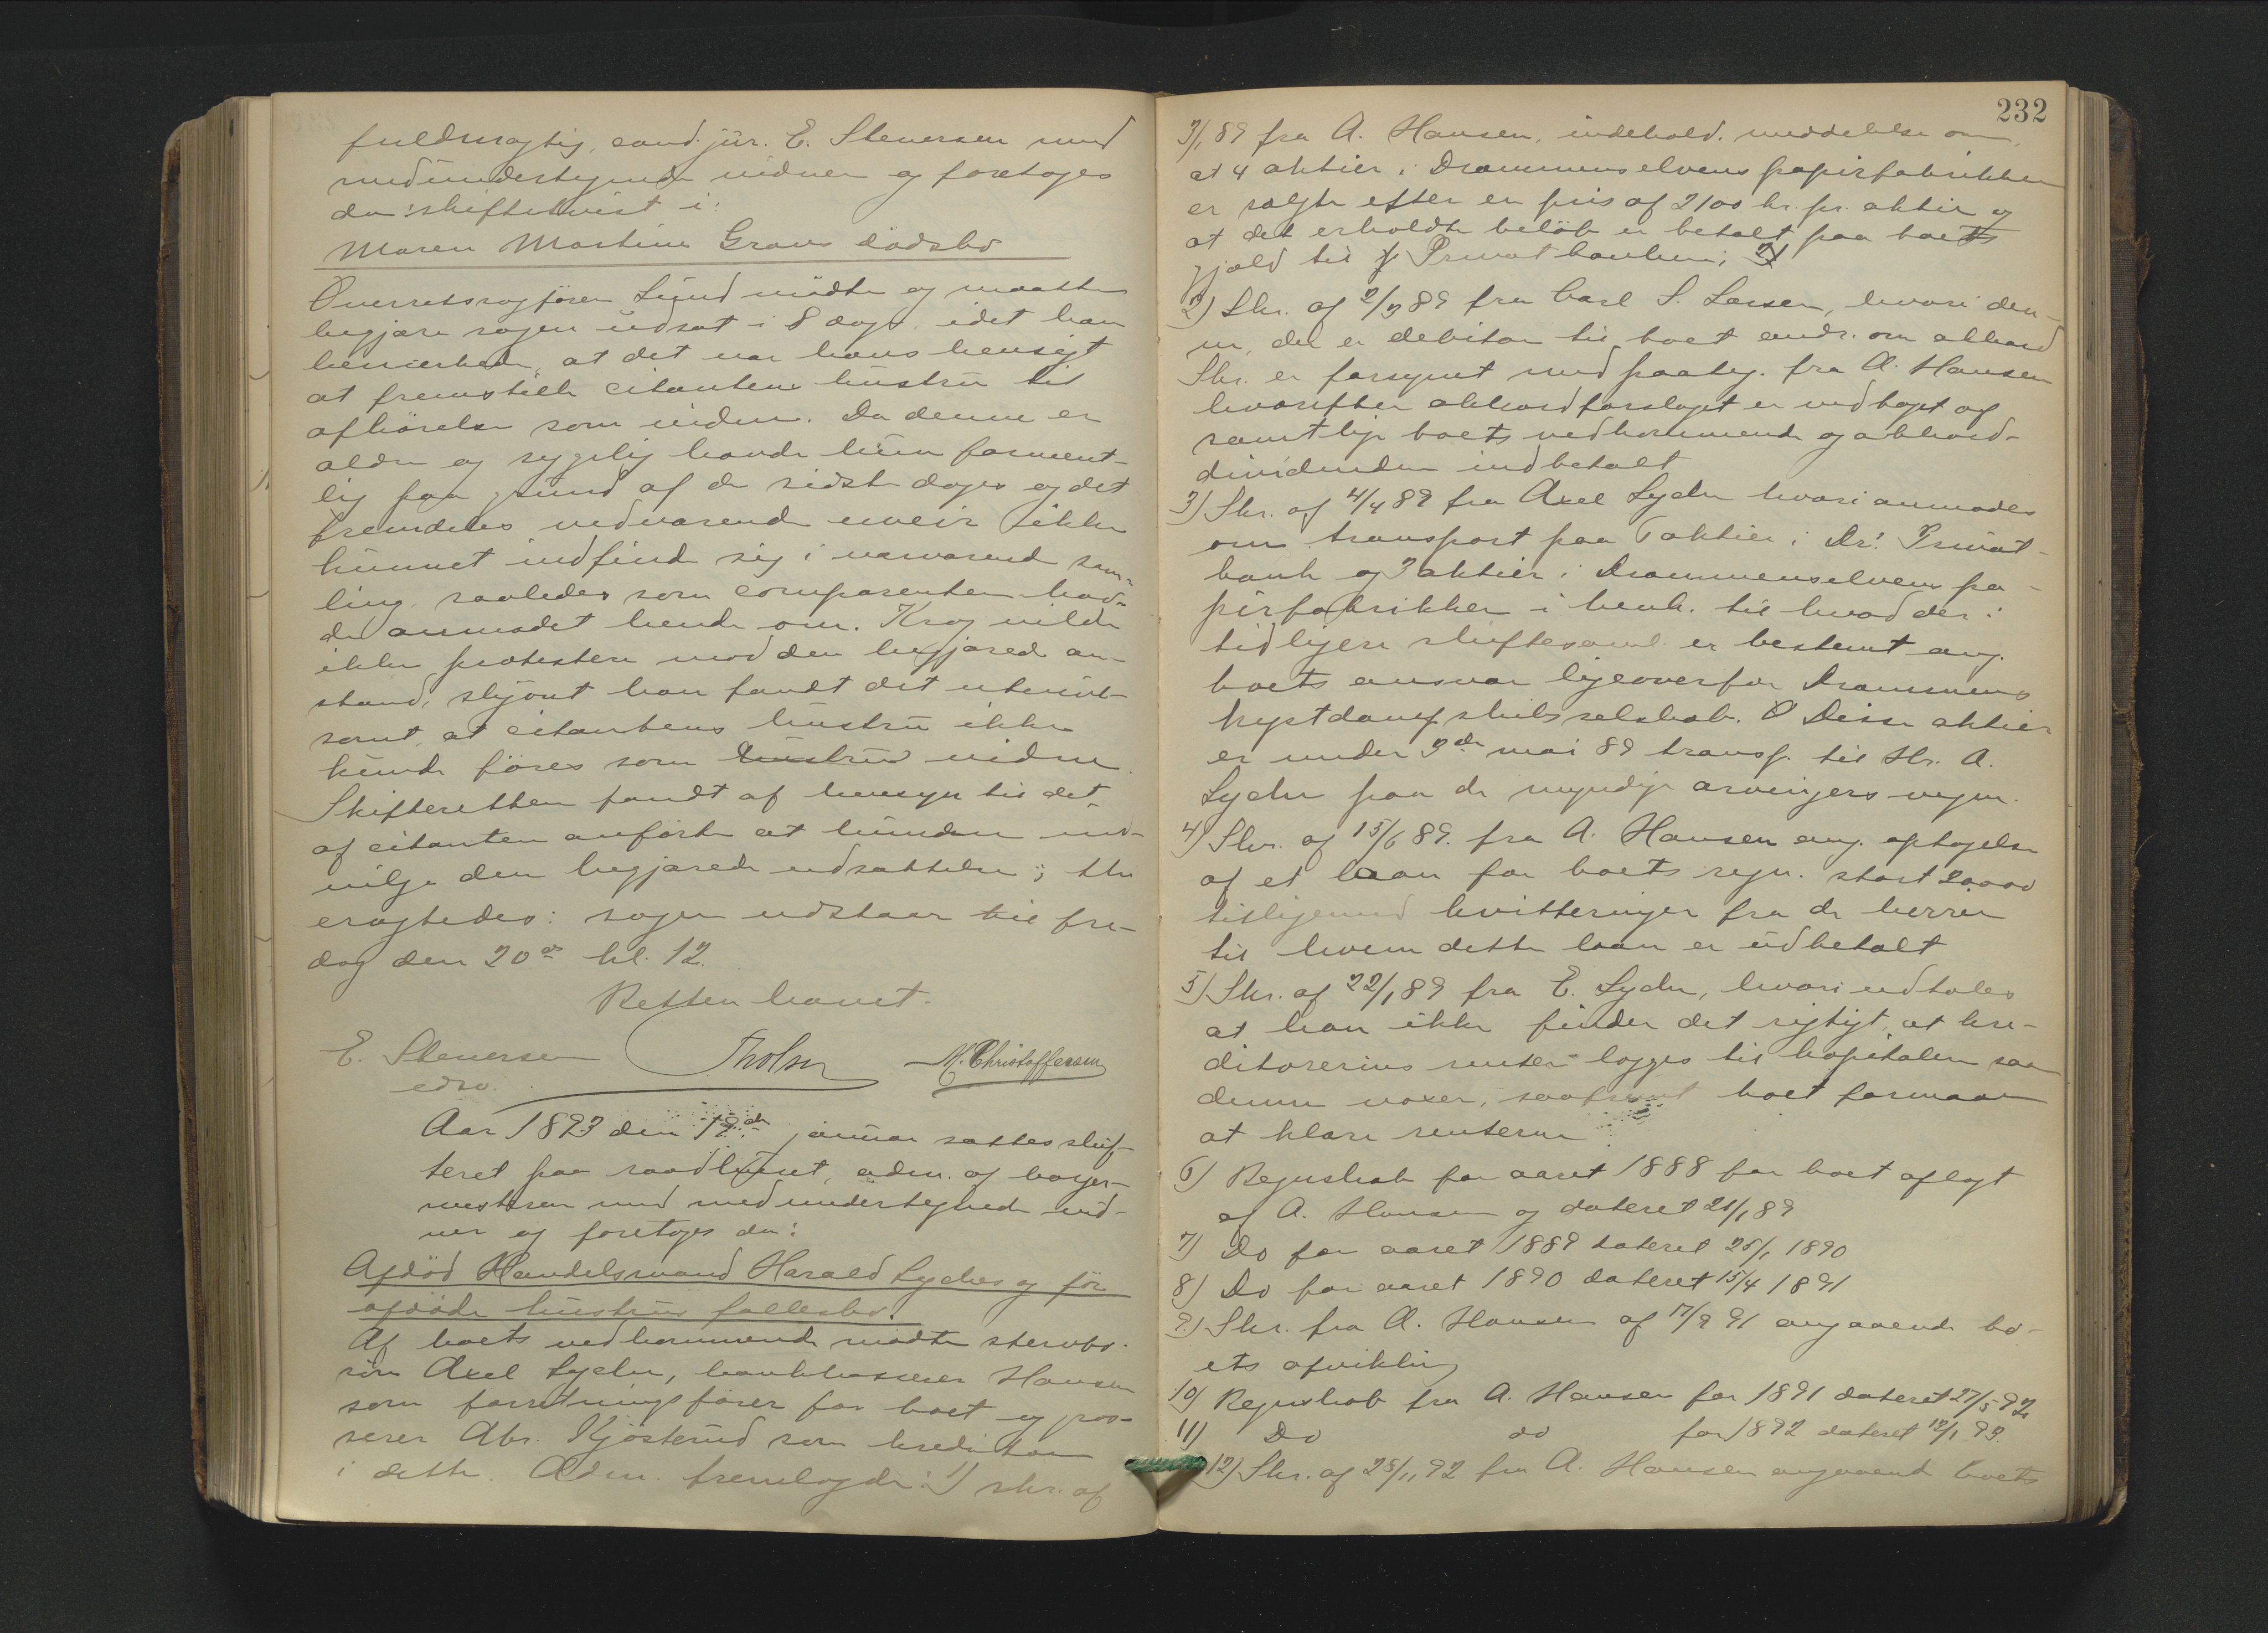 fuldmægtig, cand. jur. E. Stenersen med
medundertegnede vidner og foretoges
da: skiftetvist i:
Maren Martine Graus dödsbo
Overretssagförer Lund mödte og maatte
begjære sagen udsat i 8 dage, idet han
bemærkede, at det var hans hensigt
at fremstille citantens hustru til
afhörelse som vidne. Da denne er
ældre og sygelig havde hun forment-
lig paa grund af de sidste dages og det
fremdeles vedvarende uveir ikke
kunnet indfinde sig i nærværende sam-
ling, saaledes som comparenten hav-
de anmodet hende om. Krag vilde
ikke protestere mod den begjærede an-
stand, skjönt han fandt det utvivl-
somt, at citantens hustru ikke
kunde föres som hustru vidne.
Skifteretten fandt af hensyn til det
af citanten anförte at kunde med-
vilge den begjærede udsættelse; thi
eragtedes: sagen udstaar til fre-
dag den 20de kl. 12.
Retten hævet.
E. Stenersen Tholsen M. Christoffersen
edsv.
Aar 1893 den 19de januar sattes skif-
teret paa raadhuset, adm. af borger-
mesteren med medundertegnede vid-
ner og foretoges da:
Afdöd Handelsmand Harald Lyches og för
afdöde hustrus fællesbo.
Af boets vedkommende mödte
Axel Lyche, bankkasserer Hansen
som forretningsförer for boet og pros-
serer Abr. Kjösterud som kreditor
i dette. Adm. fremlagde: 1) skr. af
232
3/1 89 fra A. Hansen, indehold. meddelelse om,
at 4 aktier i Drammenselvens papirfabrikker
er solgte efter en pris af 2100 kr. pr. aktie og
at det erholdte belöb er betalt paa boets
gjæld til Privatbanken; 2)
2) Skr. af 2/3 89 fra Carl S. Larsen, hvori den-
ne, der er debitor til boet andr. om akkord
Skr. er forsynet med paateg. fra A. Hansen
hvorefter akkordforslaget er vedtaget af
samtlige boets vedkommende og akkord-
dividenden indbetalt
3) Skr. af 4/4 89 fra Axel Lyche hvori anmodes
om transport paa 6 aktier i Dr. Privat-
bank og 3 aktier i Drammenselvens pa-
pirfabrikker i henh. til hvad der i
tidligere skiftesaml. er bestemt ang.
boets ansvar ligeoverfor Drammens
kystdampskibsselskab. Disse aktier
er under 3die mai 89 transp. til Hr. A.
Lyche paa de myndige arvingers vegne.
4) Skr. af 15/6 89. fra A. Hansen ang. optagelse
af et laan for boets regn. stort 20000
tilligemed kvitteringer fra de herrer
til hvem dette laan er udbetalt
5) Skr. af 22/1 89 fra E. Lyche, hvori udtales
at han ikke finder det rigtigt, at kre-
ditorernes renter lægges til kapitalen saa
denne voxer, saafremt boet formaar
at klare renterne
6) Regnskab for aaret 1888 for boet aflagt
af A. Hansen og dateret 21/1 89
7) Do for aaret 1889 dateret 25/1 1890
8) Do for aaret 1890 dateret 15/4 1891
9) Skr. fra A. Hansen af 17/9 91 angaaende bo-
ets afvikling
10) Regnskab fra A. Hansen for 1891 dateret 27/5 92
11) Do do for 1892 dateret 12/1 93.
12) Skr. af 28/11 92 fra A. Hansen angaaende boets